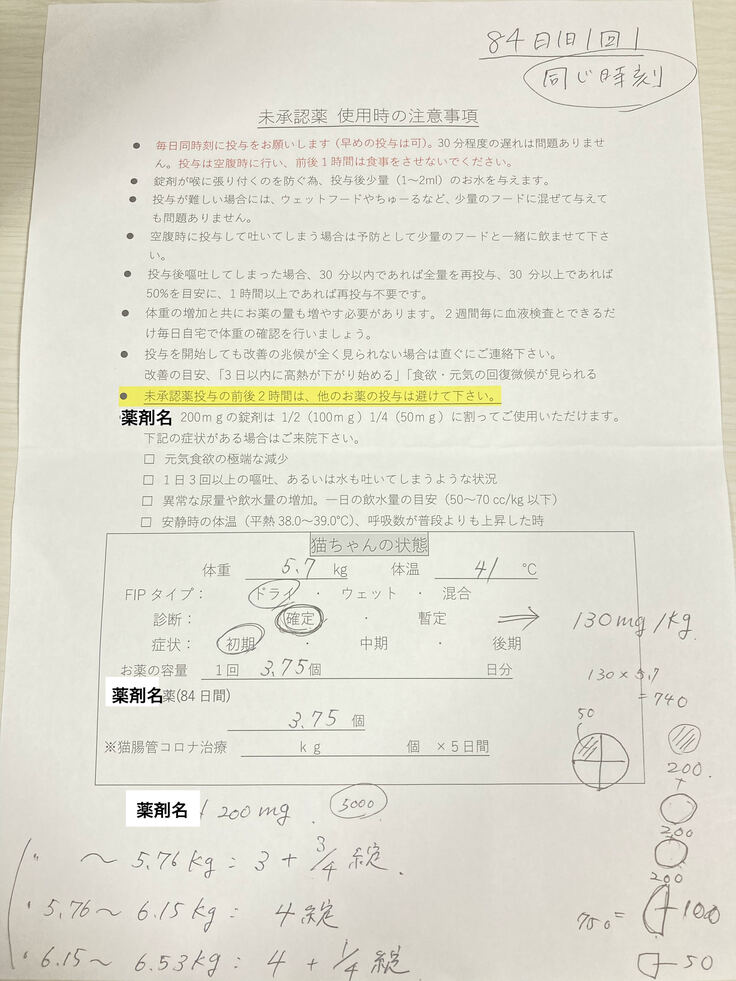 84日1日1回
同じ時刻
未承認薬 使用時の注意事項
● 毎日同時刻に投与をお願いします（早めの投与は可）。30分程度の遅れは問題ありませ
ん。投与は空腹時に行い、前後1時間は食事をさせないでください。
● 錠剤が喉に張り付くのを防ぐ為、投与後少量（1〜2ml）のお水を与えます。
● 投与が難しい場合には、ウェットフードやちゅーるなど、少量のフードに混ぜて与えて
も問題ありません。
● 空腹時に投与して吐いてしまう場合は予防として少量のフードと一緒に飲ませて下さ
い。
● 投与後嘔吐してしまった場合、30分以内であれば全量を再投与、30分以上であれば
50%を目安に、1時間以上であれば再投与不要です。
● 体重の増加と共にお薬の量も増やす必要があります。2週間毎に血液検査とできるだ
け毎日自宅で体重の確認を行いましょう。
● 投与を開始しても改善の兆候が全く見られない場合は直ぐにご連絡下さい。
改善の目安、「3日以内に高熱が下がり始める」「食欲・元気の回復徴候が見られる
● 未承認薬投与の前後2時間は、他のお薬の投与は避けて下さい。
薬剤名 200mgの錠剤は 1/2（100mg）1/4（50mg）に割ってご使用いただけます。
下記の症状がある場合はご来院下さい。
□ 元気食欲の極端な減少
□ 1日3回以上の嘔吐、あるいは水も吐いてしまうような状況
□ 異常な尿量や飲水量の増加。一日の飲水量の目安（50〜70 cc/kg 以下）
□ 安静時の体温（平熱 38.0〜39.0℃）、呼吸数が普段よりも上昇した時
猫ちゃんの状態
体重 5.7 kg 体温 41 ℃
FIP タイプ： ドライ ・ ウェット ・ 混合
診断： 確定 ・ 暫定 ⇒ 130mg/kg
症状： 初期 ・ 中期 ・ 後期
お薬の容量 1回 3.75個 日分
130×5.7
=740
薬剤名薬(84日間)
3.75 個
※猫腸管コロナ治療 kg 個 ×5日間
50
200
+
200
200
750=
100
50
薬剤名 200mg. 5000
〜 5.76kg: 3 + 3/4 錠.
5.76〜 6.15kg: 4錠
6.15〜 6.53kg: 4 + 1/4 錠